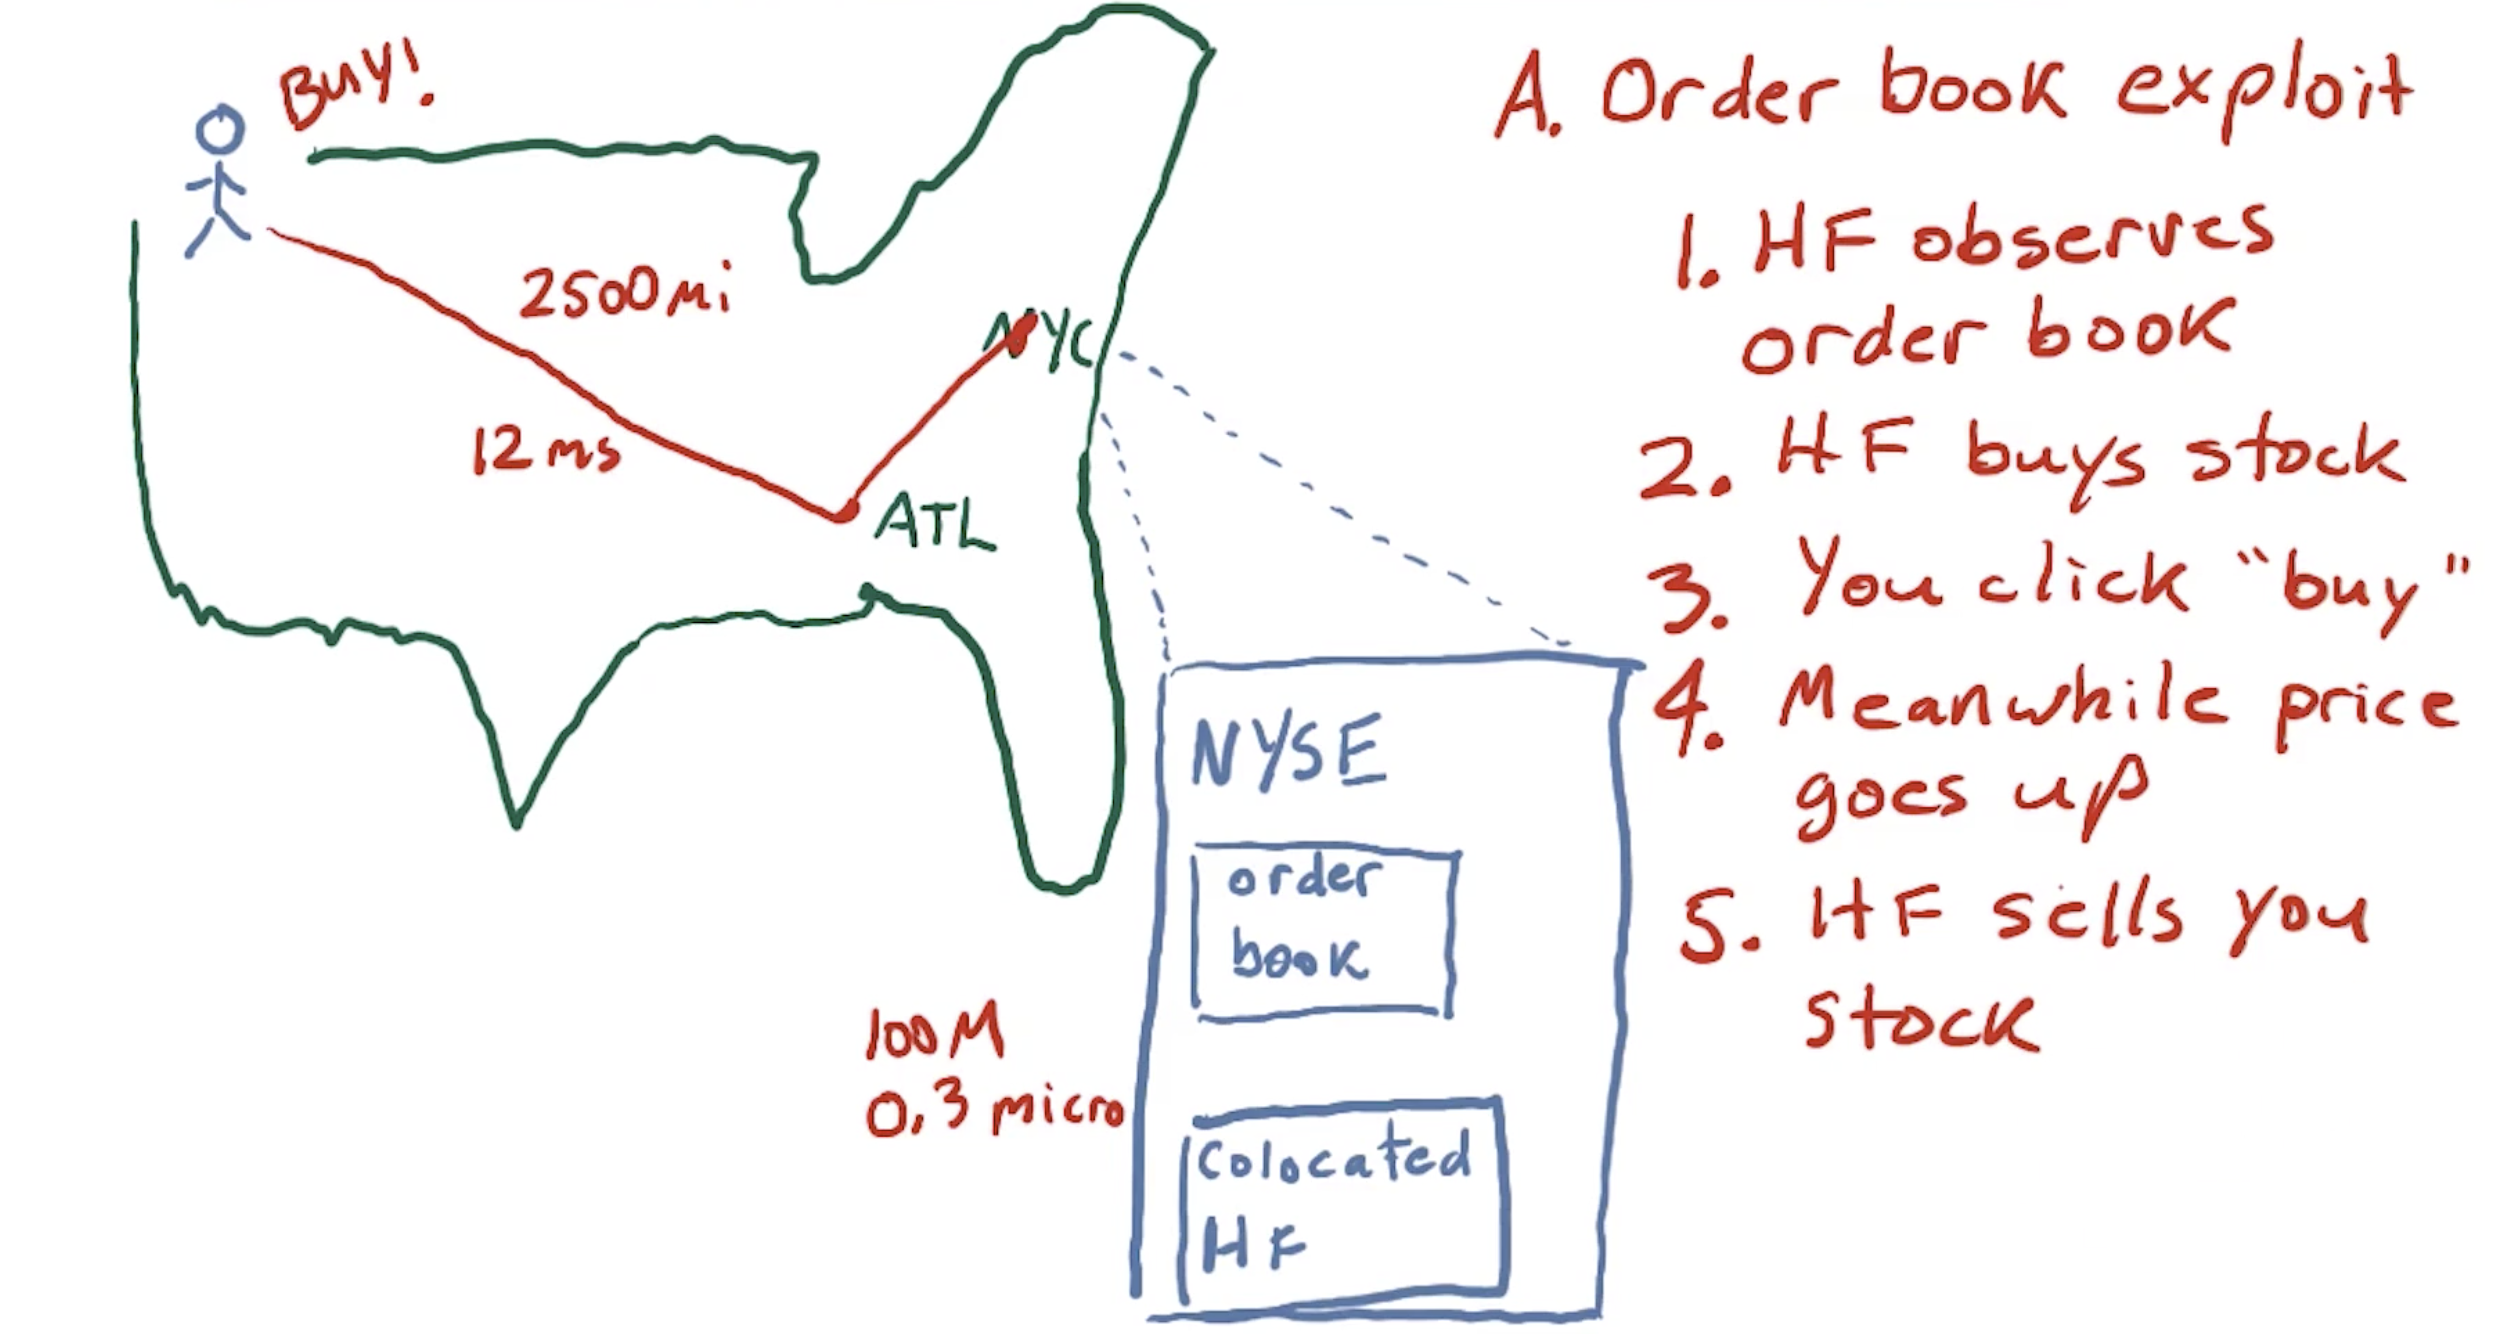 BUY!
2500 mi
NYC
12 ms
ATL
NYSE
order
book
100 M
0,3 micro
Colocated
HF
A. Order book exploit
1. HF observes
order book
2. HF buys stock
3. You click "buy"
4. Meanwhile price
goes up
5. HF sells you
stock